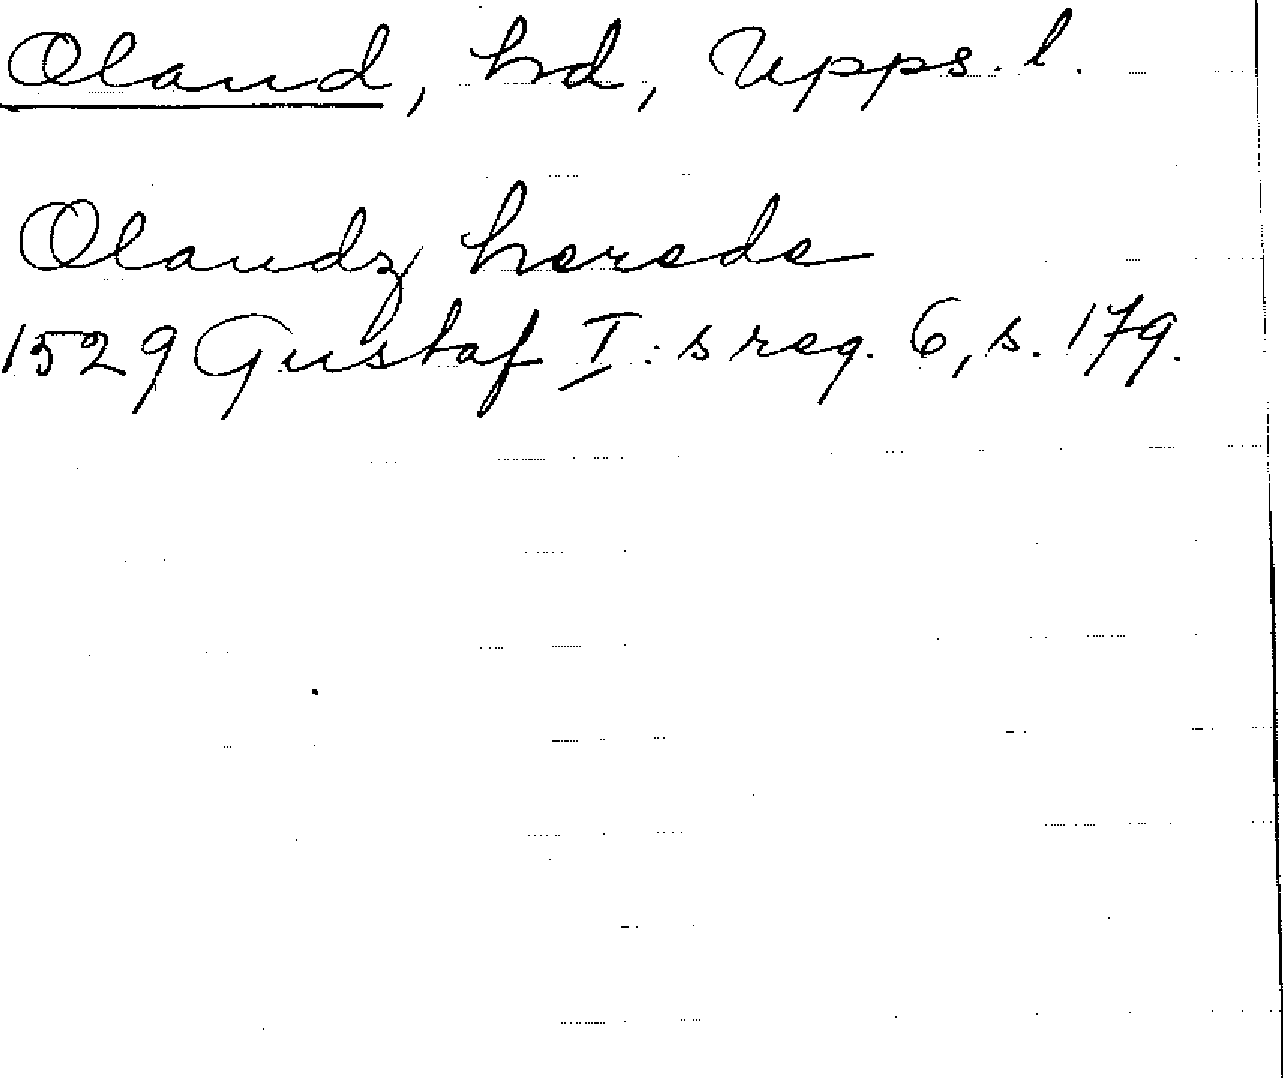 Olaud, hd, Upps. l.
Olandz herede
1529 Gustaf I: s reg. 6, s. 179.